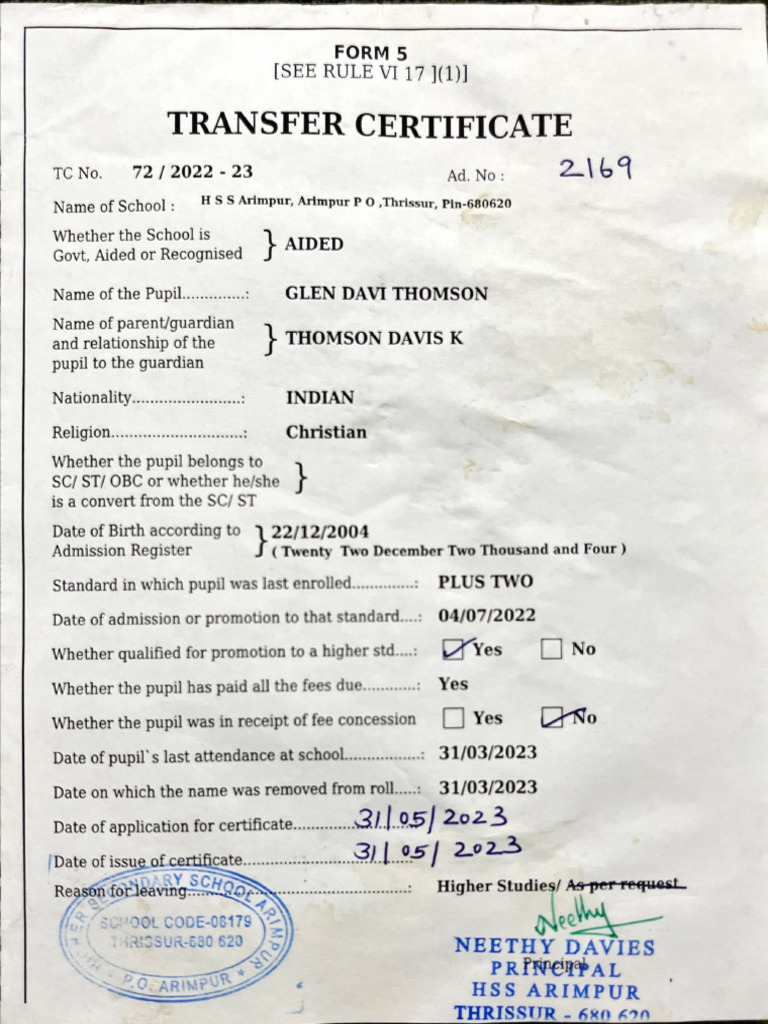 FORM 5
[SEE RULE VI 17 ](1)]
TRANSFER CERTIFICATE
TC No. 72 / 2022 - 23 Ad. No : 2169
Name of School : H S S Arimpur, Arimpur P O ,Thrissur, Pin-680620
Whether the School is
Govt, Aided or Recognised } AIDED
Name of the Pupil..............: GLEN DAVI THOMSON
Name of parent/guardian
and relationship of the } THOMSON DAVIS K
pupil to the guardian
Nationality........................: INDIAN
Religion.............................: Christian
Whether the pupil belongs to
SC/ ST/ OBC or whether he/she }
is a convert from the SC/ ST
Date of Birth according to } 22/12/2004
Admission Register ( Twenty Two December Two Thousand and Four )
Standard in which pupil was last enrolled..............: PLUS TWO
Date of admission or promotion to that standard....: 04/07/2022
Whether qualified for promotion to a higher std....: Yes No
Whether the pupil has paid all the fees due............: Yes
Whether the pupil was in receipt of fee concession Yes No
Date of pupil`s last attendance at school.................: 31/03/2023
Date on which the name was removed from roll.....: 31/03/2023
Date of application for certificate............... 31/05/2023
Date of issue of certificate........................... 31/05/2023
Reason for leaving..............................................: Higher Studies/ As per request
HIGHER SECONDARY SCHOOL ARIMPUR
SCHOOL CODE-08179
THRISSUR-680 620
P.O. ARIMPUR
Neethy
NEETHY DAVIES
Principal
PRINCIPAL
HSS ARIMPUR
THRISSUR - 680 620